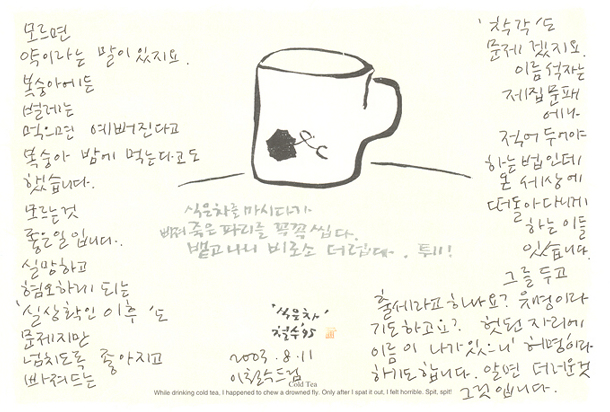 모르면
약이라는 말이 있지요.
복숭아에든
벌레는
먹으면 예뻐진다고
복숭아 밤에 먹는다고도
했습니다.
모르는것
좋은일입니다.
실망하고
혐오하게 되는
'실상확인 이후'도
문제지만
넘치도록 좋아지고
빠져드는
'착각'도
문제겠지요.
이름석자는
제집문패
에나
적어두어야
하는법인데
온 세상에
떠돌아다니게
하는 이들
있습니다.
그를 두고
출세라고하나요? 유명이라
기도하고요? 헛된 자리에
이름이 나가있으니 허명이라
하기도합니다. 알면 더러운것
그것입니다.
식은차를 마시다가
빠져죽은 파리를 꾹꾹 씹다.
뱉고나니 비로소 더럽다. 퉤!
'식은차'
철수 '95
2003. 8. 11
이철수드림
Cold Tea
While drinking cold tea, I happened to chew a drowned fly. Only after I spat it out, I felt horrible. Spit, spit!